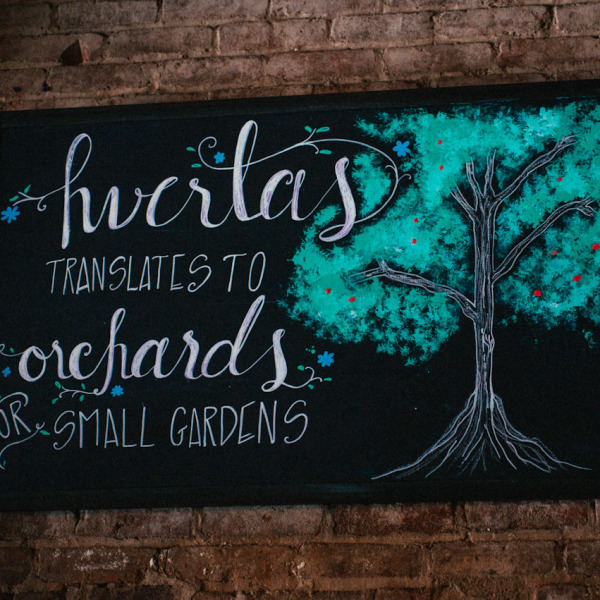 huertas
TRANSLATES TO
orchards
OR SMALL GARDENS